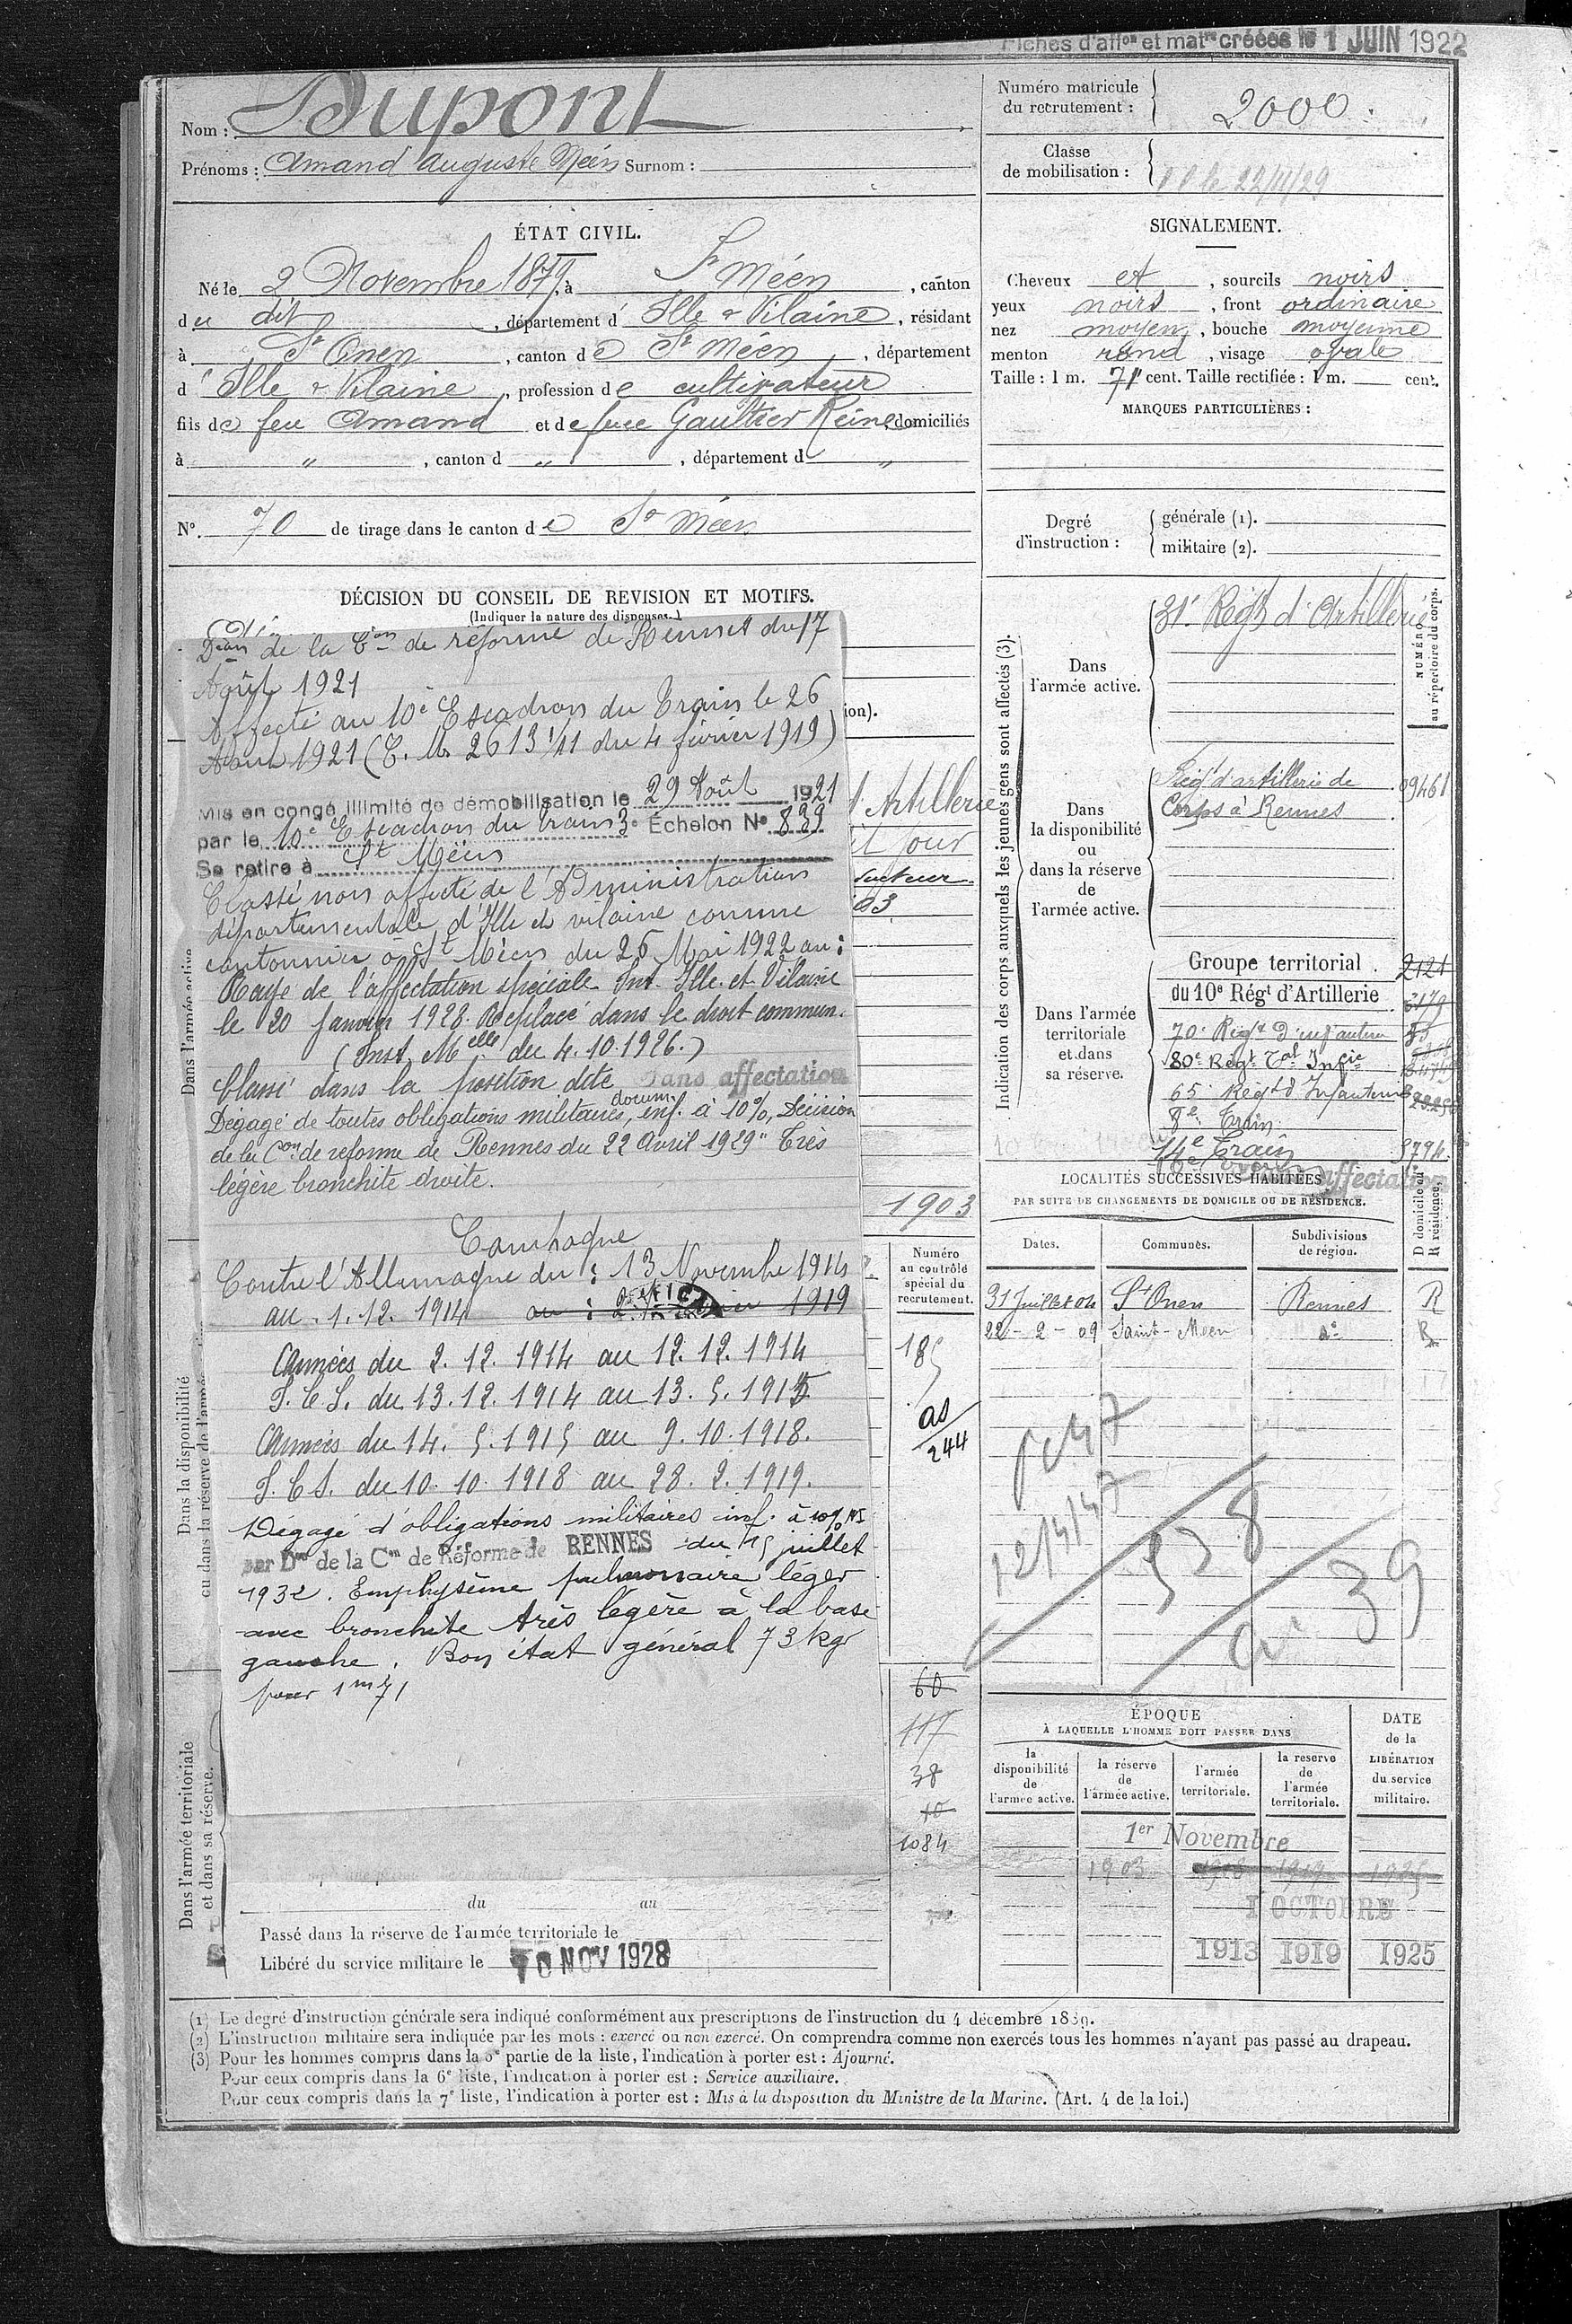 Fiches d'aff<sup>on</sup> et mat<sup>re</sup> créées le 1 JUIN 1922
Nom : Dupont
Prénoms : Amand Auguste Méen Surnom :
Numéro matricule du recrutement : 2000
Classe de mobilisation :
ÉTAT CIVIL.
Né le 2 Novembre 1879, à St Méen, canton
du dit, département d'Ille & Vilaine, résidant
à St Onen, canton de St Méen, département
d'Ille & Vilaine, profession de cultivateur
fils de feu Amand et de feue Gaultier Reine, domiciliés
à " , canton d " , département d "
N°. 70 de tirage dans le canton de St Méen
SIGNALEMENT.
Cheveux et, sourcils noirs
yeux noirs, front ordinaire
nez moyen, bouche moyenne
menton rond, visage ovale
Taille : 1 m. 71 cent. Taille rectifiée : 1 m. cent.
MARQUES PARTICULIÈRES :
Degré d'instruction : générale (1).
militaire (2).
DÉCISION DU CONSEIL DE REVISION ET MOTIFS.
(Indiquer la nature des dispenses.)
de la Con de réforme de Rennes du 17
Août 1921
Affecté au 10e Escadron du Train le 26
Août 1921 (C. M. 2613 1/11 du 4 février 1919)
Mis en congé illimité de démobilisation le 29 Août 1921
par le 10e Escadron du train 3e Échelon N° 839
Se retire à St Méen
Classé non affecté de l'Administration
départementale d'Ille et vilaine comme
cantonnier à St Méen du 26 Mai 1922 au :
Rayé de l'affectation spéciale Ille et Vilaine
le 20 Janvier 1928. Replacé dans le droit commun.
(Inst. Melle du 4.10.1926.)
Classé dans la position dite sans affectation
Dégagé de toutes obligations militaires, docum. inf. à 10%, Décision
de la Con de reforme de Rennes du 22 Avril 1929 " Très
légère bronchite droite.
Campagne
Contre l'Allemagne du : 13 Novembre 1914
au 1.12.1914 au : 1919
Armées du 2.12.1914 au 12.12.1914
T.C.S. du 13.12.1914 au 13.5.1915
Armées du 14.5.1915 au 9.10.1918.
T.C.S. du 10.10.1918 au 28.2.1919.
Dégagé d'obligations militaires inf. à 10% NI
par Don de la Con de Réforme de RENNES du 15 juillet
1932. Emphysème pulmonaire léger
avec bronchite très légère à la base
gauche. Bon état général 73 kgr
pour 1m71
ion).
Artillerie
jour
1903
Dans l'armée active
Dans la disponibilité
ou dans la réserve de l'armée
Dans l'armée territoriale
et dans sa réserve.
Numéro au contrôle spécial du recrutement.
185
as/244
60
117
38
10
1084
du au
Passé dans la réserve de l'armée territoriale le
Libéré du service militaire le 10 NOV 1928
Indication des corps auxquels les jeunes gens sont affectés (3).
NUMÉRO au répertoire du corps.
Dans l'armée active.
31e Régt d'Artillerie
Dans la disponibilité ou dans la réserve de l'armée active.
Régt d'artillerie de
Corps à Rennes
09461
Dans l'armée territoriale et dans sa réserve.
Groupe territorial. 2121
du 10e Régt d'Artillerie
70e Régt D'infanterie
80e Régt Tal Infie
65e Régt d'Infanterie
8e Train
14e Train
3794
sans affectation
LOCALITÉS SUCCESSIVES HABITÉES
PAR SUITE DE CHANGEMENTS DE DOMICILE OU DE RÉSIDENCE.
D domicile ou R résidence.
Dates. Communes. Subdivisions de région.
31 Juillet 04 St Onen Rennes R
22-2-09 Saint-Méen do R
12/4/47
538
39
ÉPOQUE
À LAQUELLE L'HOMME DOIT PASSER DANS
DATE de la LIBÉRATION du service militaire.
la disponibilité de l'armée active.
la réserve de l'armée active.
l'armée territoriale.
la reserve de l'armée territoriale.
1er Novembre
1903
1 OCTOBRE
1913 1919 1925
(1) Le degré d'instruction générale sera indiqué conformément aux prescriptions de l'instruction du 4 décembre 1889.
(2) L'instruction militaire sera indiquée par les mots : exercé ou non exercé. On comprendra comme non exercés tous les hommes n'ayant pas passé au drapeau.
(3) Pour les hommes compris dans la 5e partie de la liste, l'indication à porter est : Ajourné.
Pour ceux compris dans la 6e liste, l'indication à porter est : Service auxiliaire.
Pour ceux compris dans la 7e liste, l'indication à porter est : Mis à la disposition du Ministre de la Marine. (Art. 4 de la loi.)